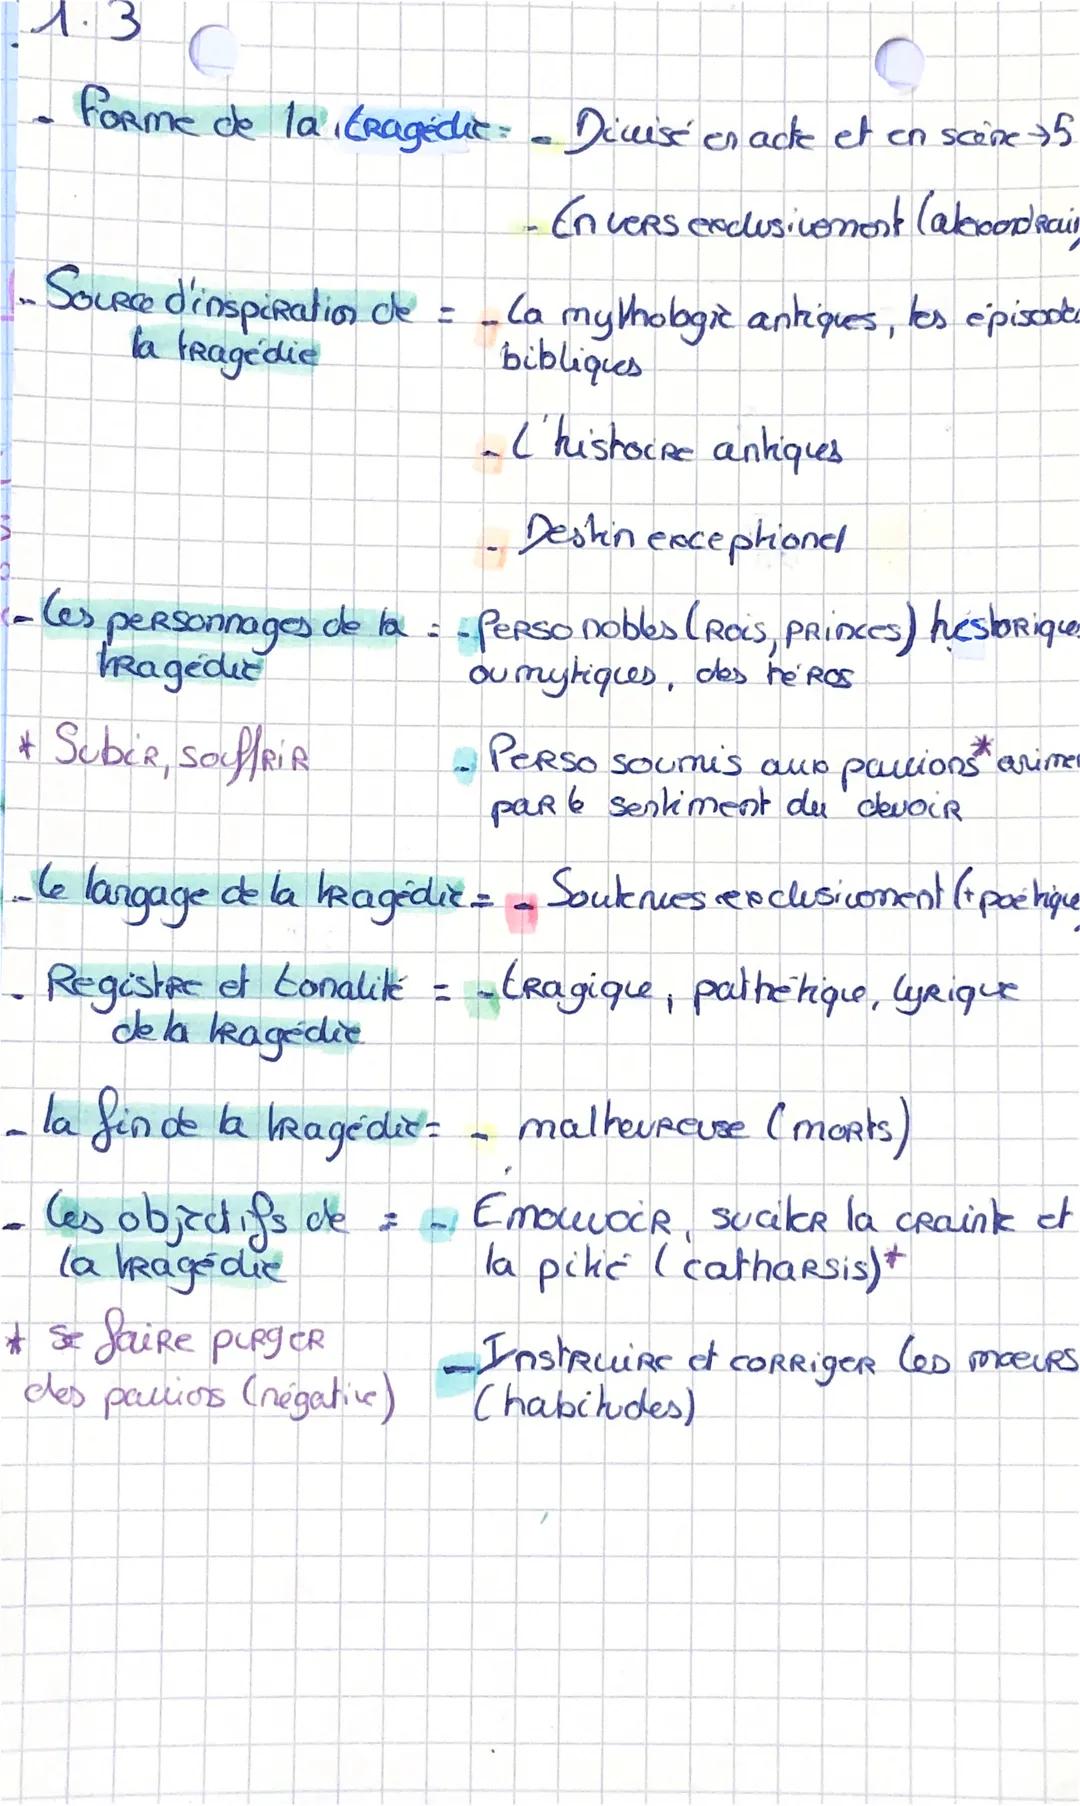 1.3
- Forme de la tragédie = - Divisé en acte et en scène → 5
- En vers exclusivement (alexandrain
- Source d'inspiration de = - La mythologie antiques, les épisode
la tragédie bibliques
- L'histoire antiques
- Destin exceptionel
- Les personnages de la = - Perso nobles (Rois, princes) historique
tragédie ou mytiques, des héros
* Subir, souffrir - Perso soumis aux passions* animer
par le sentiment du devoir
- Le langage de la tragédie = - Soutenues exclusivement (+ poétique
- Registre et tonalité = - tragique, pathétique, lyrique
de la tragédie
- la fin de la tragédie = - malheureuse (morts)
- Les objectifs de = - Emouvoir, suciter la crainte et
la tragédie la pitié (catharsis)*
* se faire purger - Instruire et corriger les moeurs
des passions (négative) (habitudes)